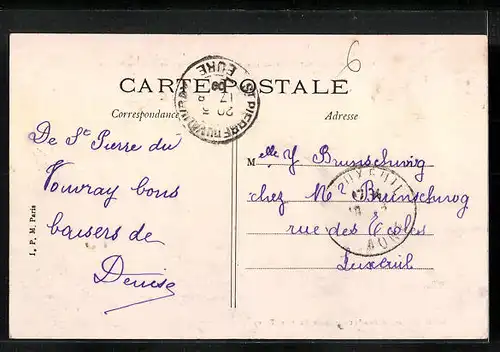 6
CARTE POSTALE
Correspondance
Adresse
De St Pierre du
Vouvray bons
baisers de
Denise
Melle Y Brunschwig
chez Mr Brunschwog
rue des Ecoles
Luxeuil
I. P. M. Paris
ST PIERRE DU VAUVRAY
EURE
20
17 8
08
LUXEUIL